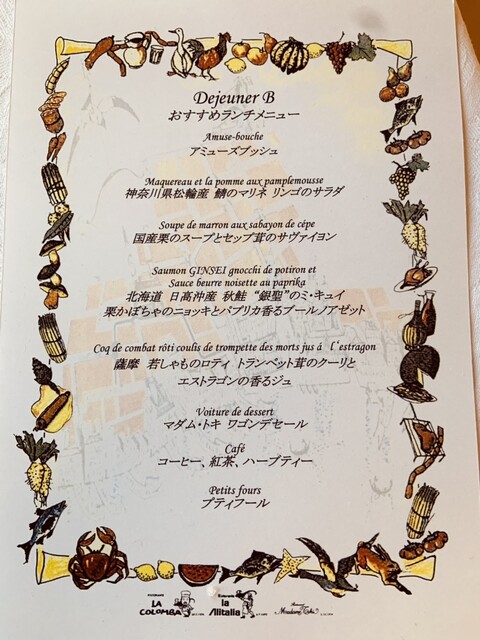 Dejeuner B
おすすめランチメニュー
Amuse-bouche
アミューズブッシュ
Maquereau et la pomme aux pamplemousse
神奈川県松輪産 鯖のマリネ リンゴのサラダ
Soupe de marron aux sabayon de cépe
国産栗のスープとセップ茸のサヴァイヨン
Saumon GINSEI gnocchi de potiron et
Sauce beurre noisette au paprika
北海道 日高沖産 秋鮭 “銀聖”のミ・キュイ
栗かぼちゃのニョッキとパプリカ香るブールノアゼット
Coq de combat rôti coulis de trompette des morts jus á l'estragon
薩摩 若しゃものロティ トランペット茸のクーリと
エストラゴンの香るジュ
Voiture de dessert
マダム・トキ ワゴンデセール
Café
コーヒー、紅茶、ハーブティー
Petits fours
プティフール
LA COLOMBA
la Allitalia
Madame Toki